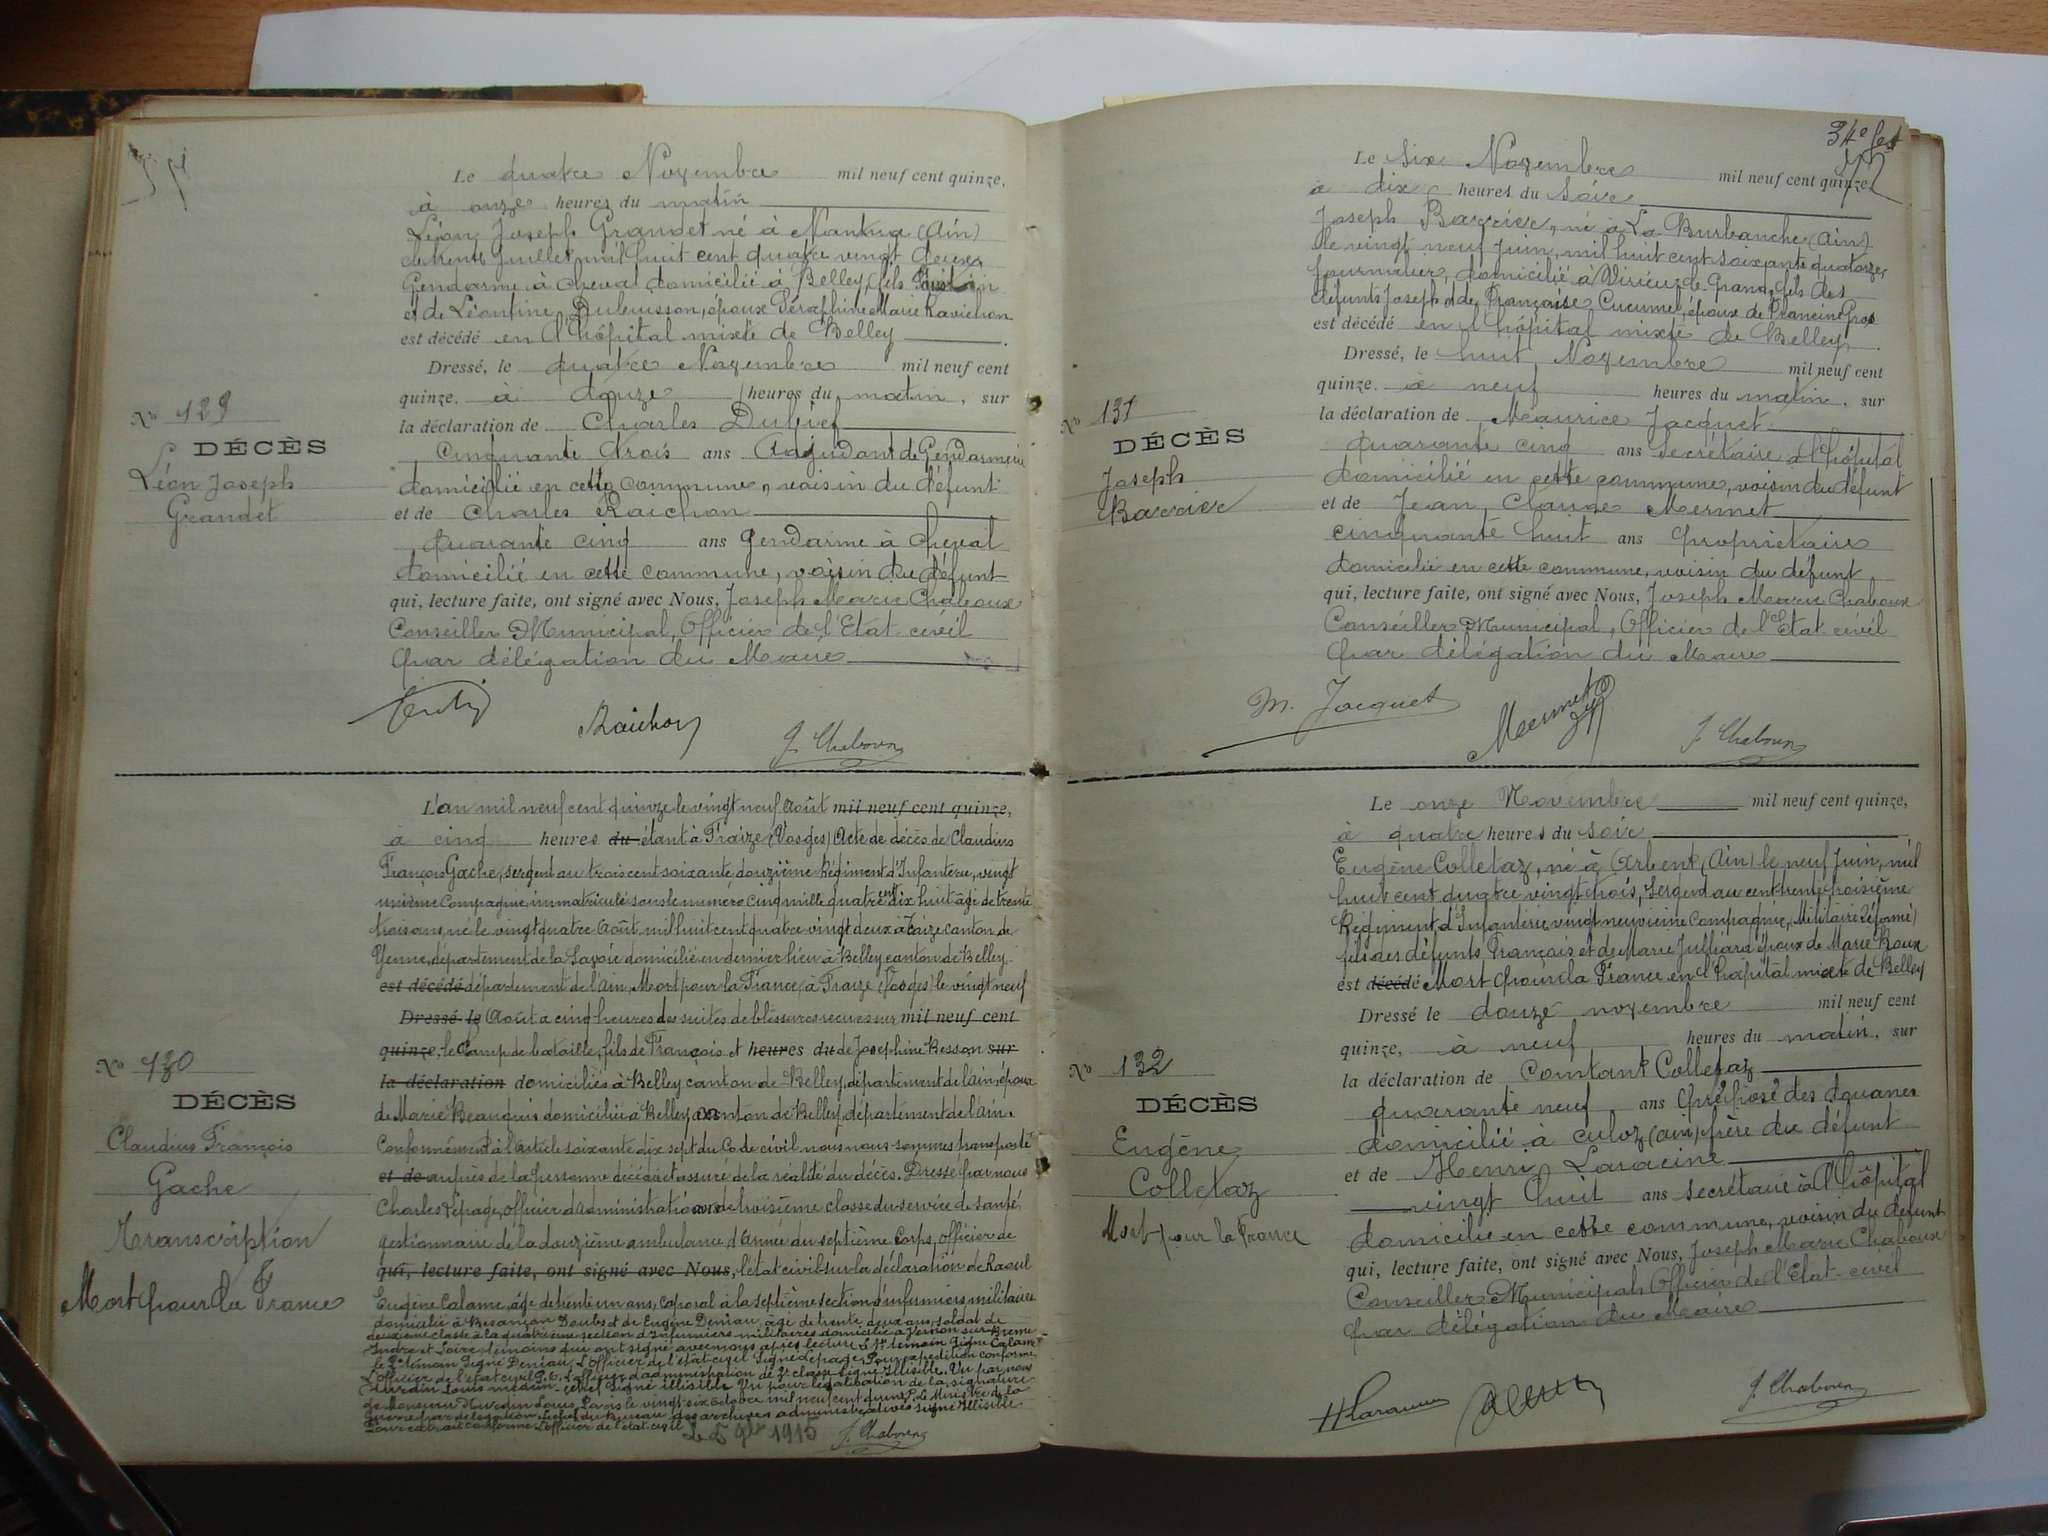 Le quatre Novembre mil neuf cent quinze,
à onze heures du matin
Léon Joseph Grandet né à Nantua (Ain)
le trente Juillet mil huit cent quatre vingt deux,
Gendarme à cheval domicilié à Belley, fils
et de Léontine Dubuisson, époux Séraphine Marie Ravichon
est décédé en l'hôpital mixte de Belley
Dressé, le quatre Novembre mil neuf cent
quinze, à douze heures du matin, sur
la déclaration de Charles
Cinquante trois ans Adjudant de Gendarmerie
domicilié en cette commune, voisin du défunt
et de Charles Raichon
quarante cinq ans gendarme à cheval
domicilié en cette commune, voisin du défunt
qui, lecture faite, ont signé avec Nous, Joseph Marie Chaboux
Conseiller Municipal, Officier de l'Etat civil
par délégation du Maire
No 129
DÉCÈS
Léon Joseph
Grandet
Raichon
J. Chaboux
L'an mil neuf cent quinze le vingt neuf Août mil neuf cent quinze,
à cinq heures du étant à Fraize (Vosges) Acte de décès de Claudius
François Gache, sergent au trois cent soixante douzième Régiment d'Infanterie, vingt
unième Compagnie, immatriculé sous le numéro cinq mille quatre cent dix huit âgé de trente
trois ans, né le vingt quatre Août mil huit cent quatre vingt deux à canton de
Yenne, département de la Savoie domicilié en dernier lieu à Belley canton de Belley
est décédé département de l'Ain, Mort pour la France à Fraize (Vosges) le vingt neuf
Dressé le Août à cinq heures des suites de blessures reçues sur mil neuf cent
quinze, le champ de bataille, fils de François et heures du de Joséphine Besson sur
la déclaration domiciliés à Belley canton de Belley, département de l'Ain, époux
de Marie Beauquis domiciliée à Belley, canton de Belley, département de l'Ain.
Conformément à l'article soixante dix sept du Code civil nous nous sommes transporté
et de auprès de la personne décédée et assuré de la réalité du décès. Dressé par nous
Charles Lépage, officier d'administration ans de troisième classe du service de santé,
gestionnaire de la douzième ambulance d'Armée du septième Corps, officier de
qui, lecture faite, ont signé avec Nous, l'état civil sur la déclaration de Raoul
Eugène Calame, âgé de trente un ans, caporal à la septième section d'infirmiers militaires
domicilié à Besançon Doubs et de Eugène Deniau, âgé de trente deux ans, soldat de
deuxième classe à la quatrième section d'Infirmiers militaires domicilié à
Indre et Loire, témoins qui ont signé avec nous après lecture. Le 1er témoin Signé Calame
le 2e témoin Signé Deniau, L'officier de l'état civil Signé Lépage, Pour expédition conforme
L'officier de l'état civil l'officier d'administration de 2e classe Signé Illisible. Vu par nous
Signé illisible Vu pour légalisation de la signature
de Monsieur Louis, Paris le vingt six octobre mil neuf cent quinze. Le Ministre de la
Guerre par délégation le chef du Bureau des archives administratives signé Illisible
Pour extrait conforme L'officier de l'état civil Le 5 9bre 1915 J. Chaboux
No 130
DÉCÈS
Claudius François
Gache
Transcription
Mort pour la France
34e
Le six Novembre mil neuf cent quinze
à dix heures du soir
Joseph Barrier, né à La Burbanche (Ain)
le vingt neuf Juin, mil huit cent soixante quatorze,
journalier, domicilié à Virieu-le-Grand, fils des
défunts Joseph et de Françoise Cucumel, époux de Francine Gros
est décédé en l'hôpital mixte de Belley
Dressé, le huit Novembre mil neuf cent
quinze, à neuf heures du matin, sur
la déclaration de Maurice Jacquet
quarante cinq ans secrétaire à l'hôpital
domicilié en cette commune, voisin du défunt
et de Jean Claude Mermet
cinquante huit ans propriétaire
domicilié en cette commune, voisin du défunt
qui, lecture faite, ont signé avec Nous, Joseph Marie Chaboux
Conseiller Municipal, Officier de l'Etat civil
par délégation du Maire
No 131
DÉCÈS
Joseph
Barrier
M. Jacquet
Mermet
J. Chaboux
Le onze Novembre mil neuf cent quinze,
à quatre heures du soir
Eugène Colletaz, né à Arbent (Ain) le neuf Juin, mil
huit cent quatre vingt trois, Sergent au cent trente troisième
Régiment d'Infanterie, vingt neuvième Compagnie, (Militaire réformé)
fils des défunts François et de Marie Julliard époux de Marie Roux
est décédé Mort pour la France en l'hôpital mixte de Belley
Dressé le douze novembre mil neuf cent
quinze, à neuf heures du matin, sur
la déclaration de Constant Colletaz
quarante neuf ans préposé des douanes
domicilié à Culoz (Ain) frère du défunt
et de Henri Laracine
vingt huit ans secrétaire à l'hôpital
domicilié en cette commune, voisin du défunt
qui, lecture faite, ont signé avec Nous, Joseph Marie Chaboux
Conseiller Municipal Officier de l'Etat-civil
par délégation du Maire
No 132
DÉCÈS
Eugène
Colletaz
Mort pour la France
HLaracine
J. Chaboux